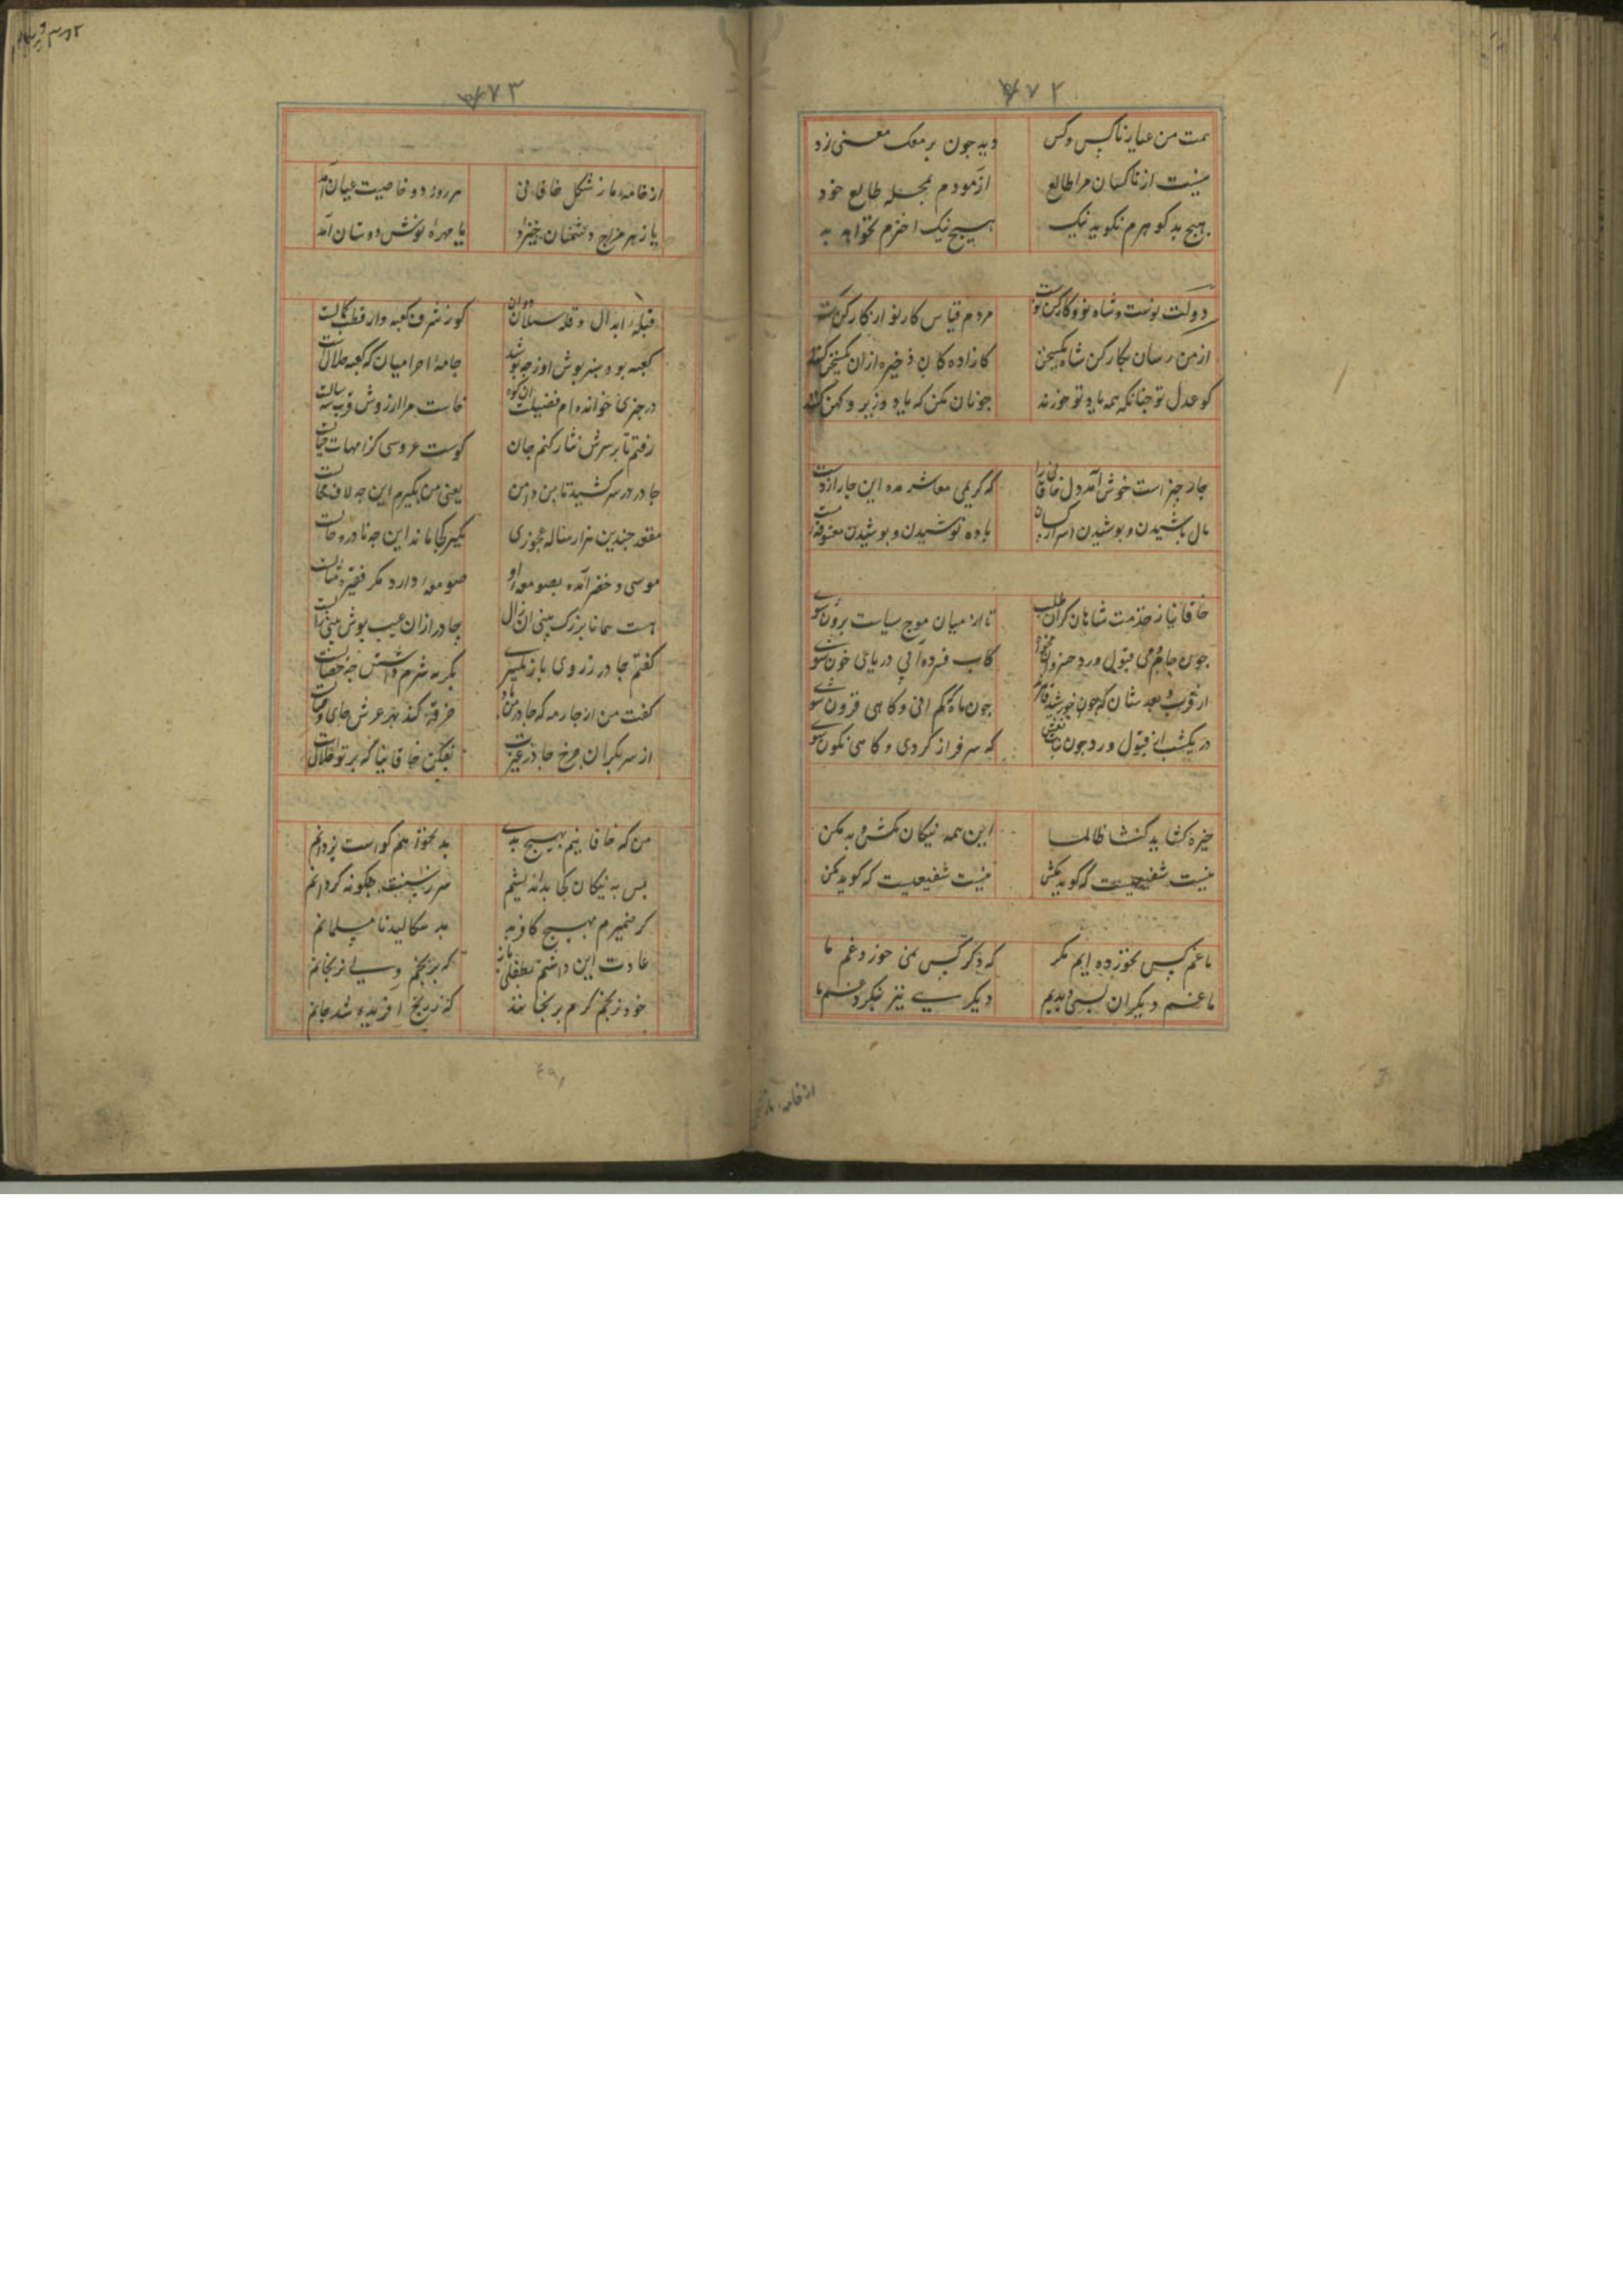 ۶۷۲
همت من عیار ناکس و کس دید چون بر محک معنی زد
نیست از ناکسان مرا طالع آزمودم بجمله طالع خود
هیچ بد گوهرم نکوید نیک هیچ نیک اخترم نخواهد بد
دولت نوست و شاه نو و کارکن نوست مردم قیاس کار نو از کارکن
از من رسان بکارکن شاه یک سخن کازاده کان ذخیره ازان یک سخن کنند
کو عدل تو چنانکه همه باد تو خورند چونان مکن که یاد وزیر کهن کنند
چار چیز است خوش آمد دل خاقانی را که کریمی معاشر مده این چار از دست
مال پاشیدن و پوشیدن اسرار کسان باده نوشیدن و بوسیدن معشوقه مست
خاقانیا ز خدمت شاهان کران طلب تا از میان موج سیاست برون شوی
جوش جام می قبول و رد کاب فسرده آیی دریای خون شوی
از قرب و بعد شان که چون خورشید چون ماه کم آئی و کاهی فزون شوی
در یکشب از قبول و رد چون بنات نعش که سرفراز کردی و کاهی نکون شوی
خیره کشا بد کنشا ظالما این همه نیکان مکش و بد مکن
نیست شفیعیت که کوید مکش نیست شفیعیت که کوید مکن
ما غم کس نخورده ایم مکر که دکر کس نمی خورد غم ما
ما غم دیکران بسی دیدیم دیکری نیز ننکرد غم ما
از خامه مار
۶۷۳
از خامه مار شکل خاقانی هر روز دو خاصیت عیان آمد
یا زهر مزاج دشمنان خیزد یا مهره نوش دوستان آمد
قبله ابدال قله سبلان دان کو ز شرف کعبه وار قطب کمالست
کعبه بود سبز پوش او ز چه پوشد جامه احرامیان که کعبه حلالست
در خبری خوانده ام فضیلت آن کوه خاست مرا آرزوش قرب سه سالست
رفتم تا بر سرش نثار کنم جان کوست عروسی کز امهات جبالست
چادر در سر کشید تا بن دامن یعنی من بکیرم این چه لاف محالست
مقعد چندین هزار ساله عجوزی بکیر کجا ماند این چه نادره حالست
موسی و خضر آمده بصومعه او صومعه دارد مکر فقیر مثالست
هست همانا بزرک بینی آن زال چادر ازان عیب پوش بینی زالست
کفتم چادر ز روی باز نکیری بکر نه شرم داشتن چه خصالست
کفت من از چارمه که چادر من خرقه کند بهر عرش جای وصالست
از سر بکران چرخ چادر غیرت نفکن خاقانیا که بر تو حلالست
من که خاقانیم بهیچ بدی بد نخواهم کواست یزدانم
پس به نیکان کجا بد اندیشم سر زنیست چکونه کردانم
کر ضمیرم بهیچ کافر بد سکالید نا مسلمانم
عادت این داشتم بطفلی باز که برنجم ولی نرنجانم
خود برنجم کرم برنجانند که ز رنج آفریده شد جانم